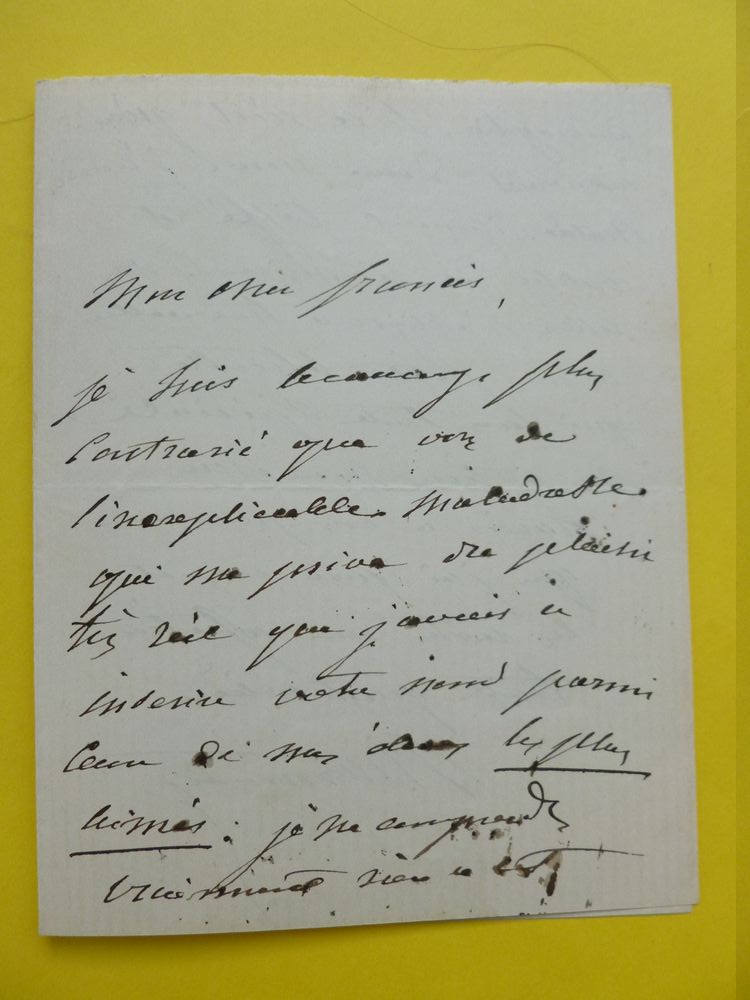 Mon cher Francis,
je suis beaucoup plus
contrarié que vous de
l'inexplicable maladresse
qui me prive du plaisir
très réel que j'avais à
inscrire votre nom parmi
ceux de mes élèves les plus
aimés. je ne comprends
vraiment rien à cet